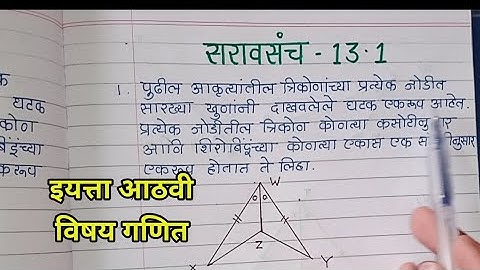 सरावसंच - 13.1
1. पुढील आकृत्यांतील त्रिकोणांच्या प्रत्येक जोडीत
सारख्या खुणांनी दाखवलेले घटक एकरूप आहेत.
प्रत्येक जोडीतील त्रिकोण कोणत्या
आणि शिरोबिंदूंच्या कोणत्या एकास एक
एकरूप होतात ते लिहा.
घटक
इयत्ता आठवी
विषय गणित
W
Z
X
Y